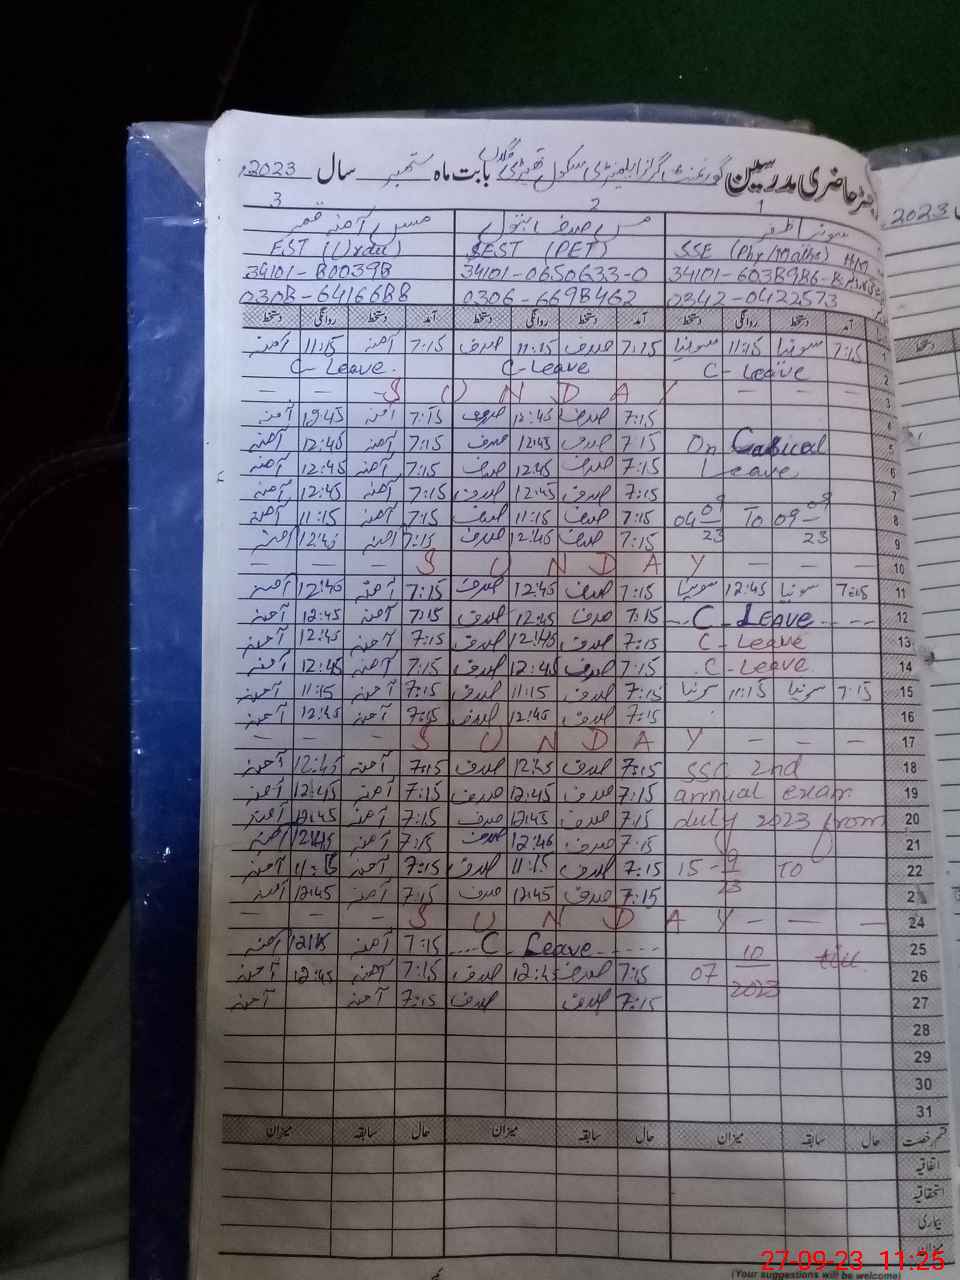 رجسٹر حاضری مدرسین گورنمنٹ گرلز ایلیمنٹری سکول بابت ماہ ستمبر سال 2023ء
1 2 3
سونیا ظفر مس صدف بتول مس آمنہ قمر
SSE (Phy/Maths) HM SEST (PET) EST (Urdu)
34101-0650633-0
0342-0422573 0306-6698462 0308-6416688
آمد دستخط روانگی دستخط آمد دستخط روانگی دستخط آمد دستخط روانگی دستخط
1 7:15 سونیا 11:15 سونیا 7:15 صدف 11:15 صدف 7:15 آمنہ 11:15 آمنہ
2 C-Leave C-Leave C-Leave.
3 S U N D A Y
7:15 صدف 12:45 صدف 7:15 آمنہ 12:45 آمنہ
5 On 7:15 صدف 12:45 صدف 7:15 آمنہ 12:45 آمنہ
6 Leave 7:15 صدف 12:45 صدف 7:15 آمنہ 12:45 آمنہ
7 7:15 صدف 12:45 صدف 7:15 آمنہ 12:45 آمنہ
8 04-09-23 To 09-09-23 7:15 صدف 11:15 صدف 7:15 آمنہ 11:15 آمنہ
9 7:15 صدف 12:45 صدف 7:15 آمنہ 12:45 آمنہ
10 S U N D A Y
11 7:15 سونیا 12:45 سونیا 7:15 صدف 12:45 صدف 7:15 آمنہ 12:45 آمنہ
12 C-LEAVE 7:15 صدف 12:45 صدف 7:15 آمنہ 12:45 آمنہ
13 C-Leave 7:15 صدف 12:45 صدف 7:15 آمنہ 12:45 آمنہ
14 C-Leave 7:15 صدف 12:45 صدف 7:15 آمنہ 12:45 آمنہ
15 7:15 سونیا 11:15 سونیا 7:15 صدف 11:15 صدف 7:15 آمنہ 11:15 آمنہ
16 7:15 صدف 12:45 صدف 7:15 آمنہ 12:45 آمنہ
17 S U N D A Y
18 SSC 2nd 7:15 صدف 12:45 صدف 7:15 آمنہ 12:45 آمنہ
19 annual exam 7:15 صدف 12:45 صدف 7:15 آمنہ 12:45 آمنہ
20 duty 2023 from 7:15 صدف 12:45 صدف 7:15 آمنہ 12:45 آمنہ
21 7:15 صدف 12:45 صدف 7:15 آمنہ 12:45 آمنہ
22 15-9-23 To 7:15 صدف 11:15 صدف 7:15 آمنہ 11:15 آمنہ
2 7:15 صدف 12:45 صدف 7:15 آمنہ 12:45 آمنہ
24 S U N D A Y
25 C-Leave 7:15 آمنہ آمنہ
26 07 10 2023 7:15 صدف 12:45 صدف 7:15 آمنہ 12:45 آمنہ
27 7:15 صدف صدف 7:15 آمنہ آمنہ
28
29
30
31
قسم رخصت حال سابقہ میزان حال سابقہ میزان حال سابقہ میزان
اتفاقیہ
استحقاقیہ
بیماری
میزان
27-09-23 11:25
(Your suggestions will be welcome)
2023
دستخط